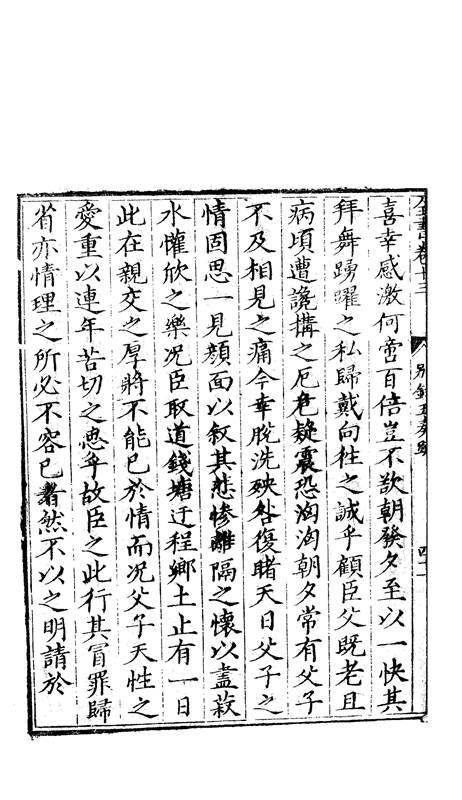 全書卷十三 別錄五奏疏
喜幸感激何啻百倍豈不欲朝發夕至以一快其
拜舞踴躍之私歸戴向往之誠乎顧臣父既老且
病頃遭讒搆之厄危疑震恐洶洶朝夕常有父子
不及相見之痛今幸脫洗殃咎復睹天日父子之
情固思一見顏面以叙其悲慘離隔之懷以盡菽
水懽欣之樂况臣取道錢塘迂程鄉土止有一日
此在親交之厚將不能已於情而况父子天性之
愛重以連年苦切之思乎故臣之此行其冒罪歸
省亦情理之所必不容已者然不以之明請於